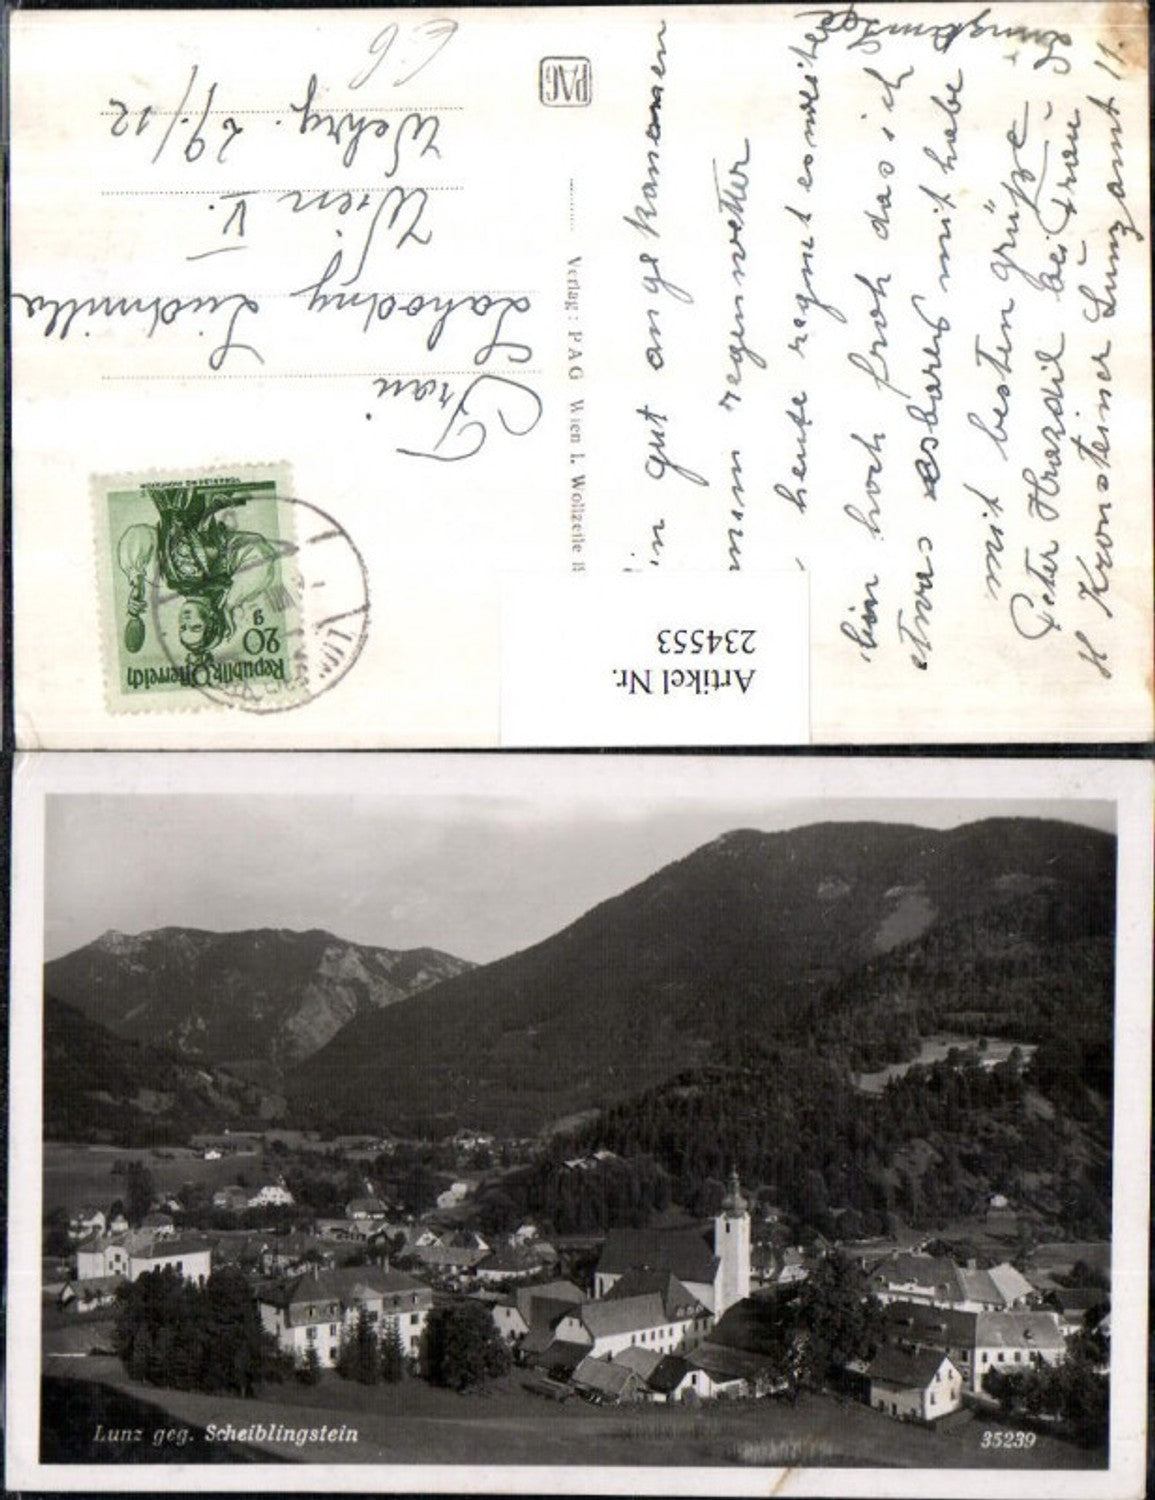 bin gut angekommen
regenwetter
heute regnet es weiter
bin hoch froh das ich
etwas esbares mit habe
mit besten grüße
Peter Hrazdil bei Frau
H Kronsteiner Lunz amt 11.
PAG
Verlag: PAG Wien 1. Wollzeile
Republik Österreich
20 g
Frau
Zahodny Ludmilla
Wien V.
Wehrg. 29/12
Artikel Nr.
234553
Lunz geg. Scheiblingstein
35239